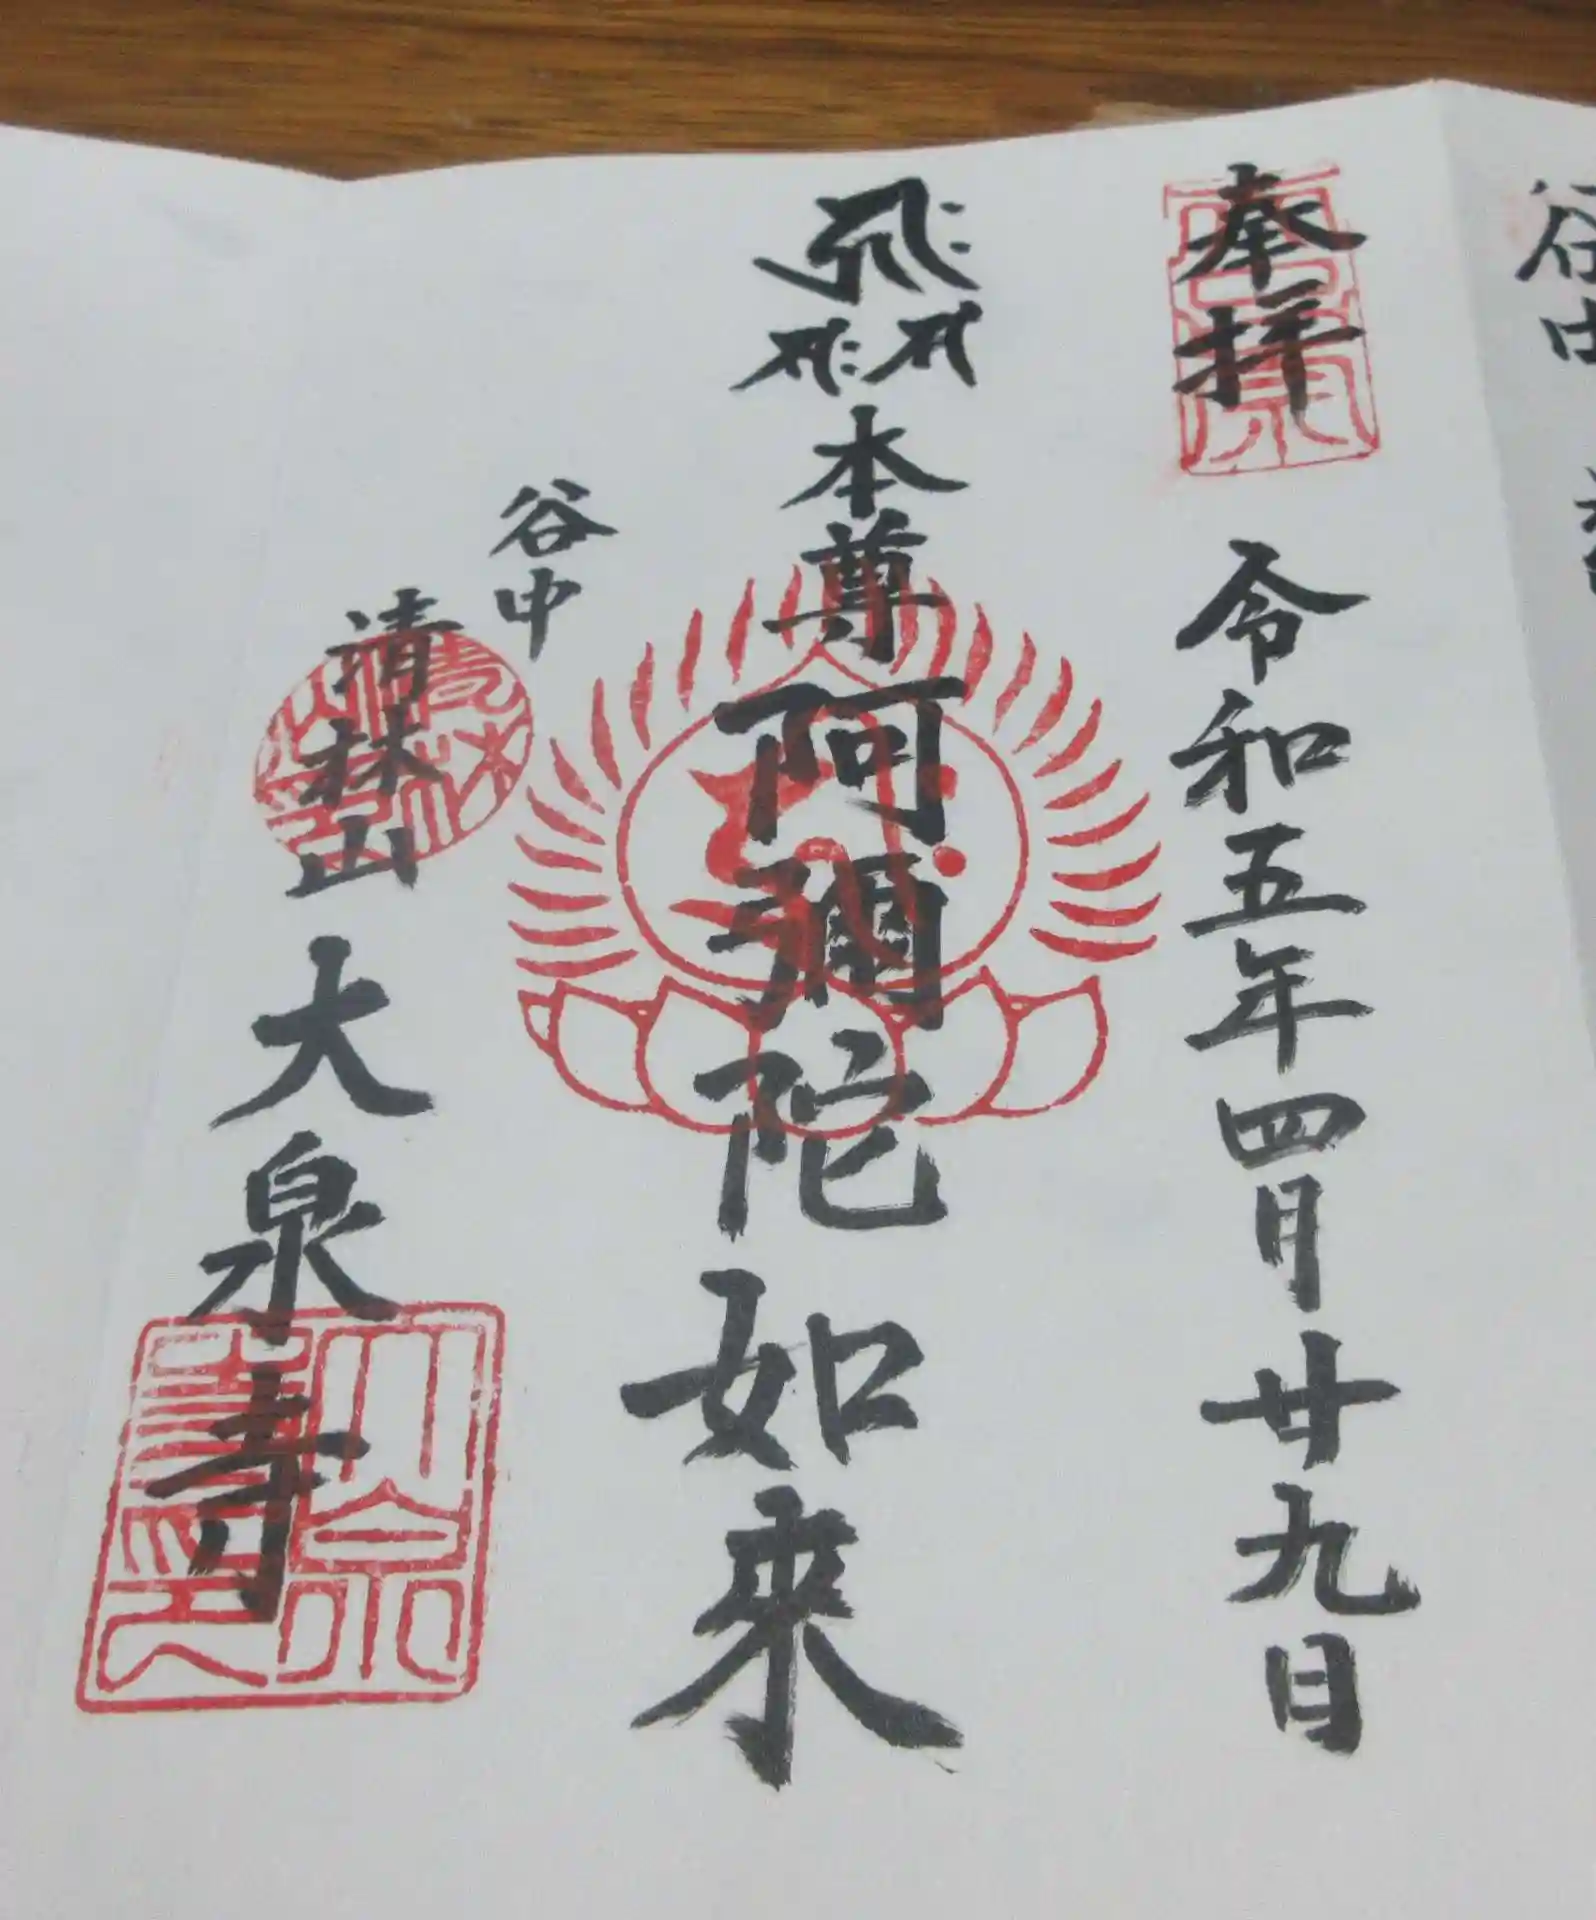 奉拝
令和五年四月廿九日
本尊阿彌陀如來
谷中
清林山
大泉寺
谷中